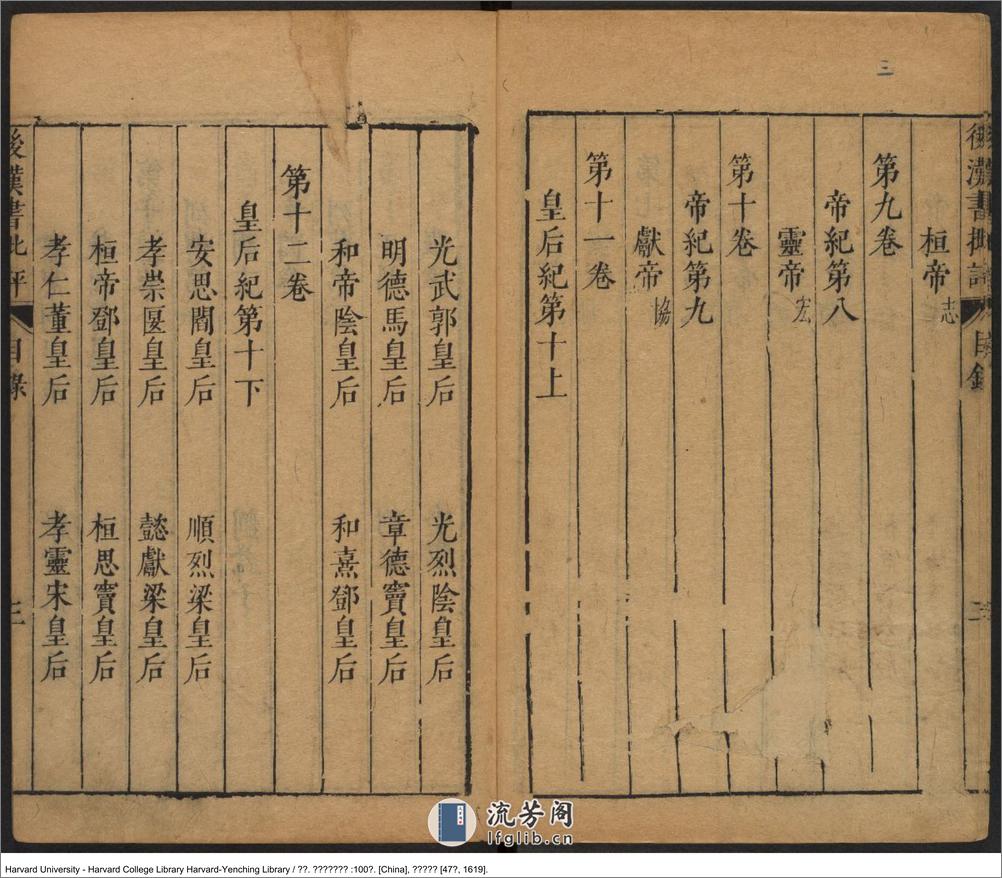 三
後漢書批評 目錄 二
桓帝志
第九卷
帝紀第八
靈帝宏
第十卷
帝紀第九
獻帝協
第十一卷
皇后紀第十上
光武郭皇后 光烈陰皇后
明德馬皇后 章德竇皇后
和帝陰皇后 和熹鄧皇后
第十二卷
皇后紀第十下
安思閻皇后 順烈梁皇后
孝崇匽皇后 懿獻梁皇后
桓帝鄧皇后 桓思竇皇后
孝仁董皇后 孝靈宋皇后
後漢書批評 目錄 三
流芳阁
lfglib.cn
Harvard University - Harvard College Library Harvard-Yenching Library / ??. ??????? :100?. [China], ????? [47?, 1619].